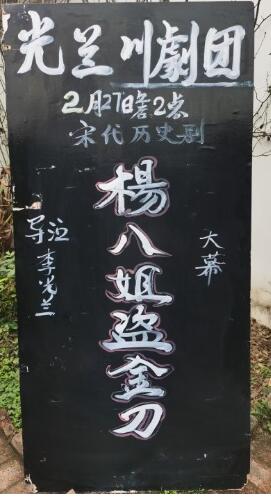 光兰川劇团
2月27日售2点
宋代历史剧
楊八姐盗金刀
导演
李光兰
大幕